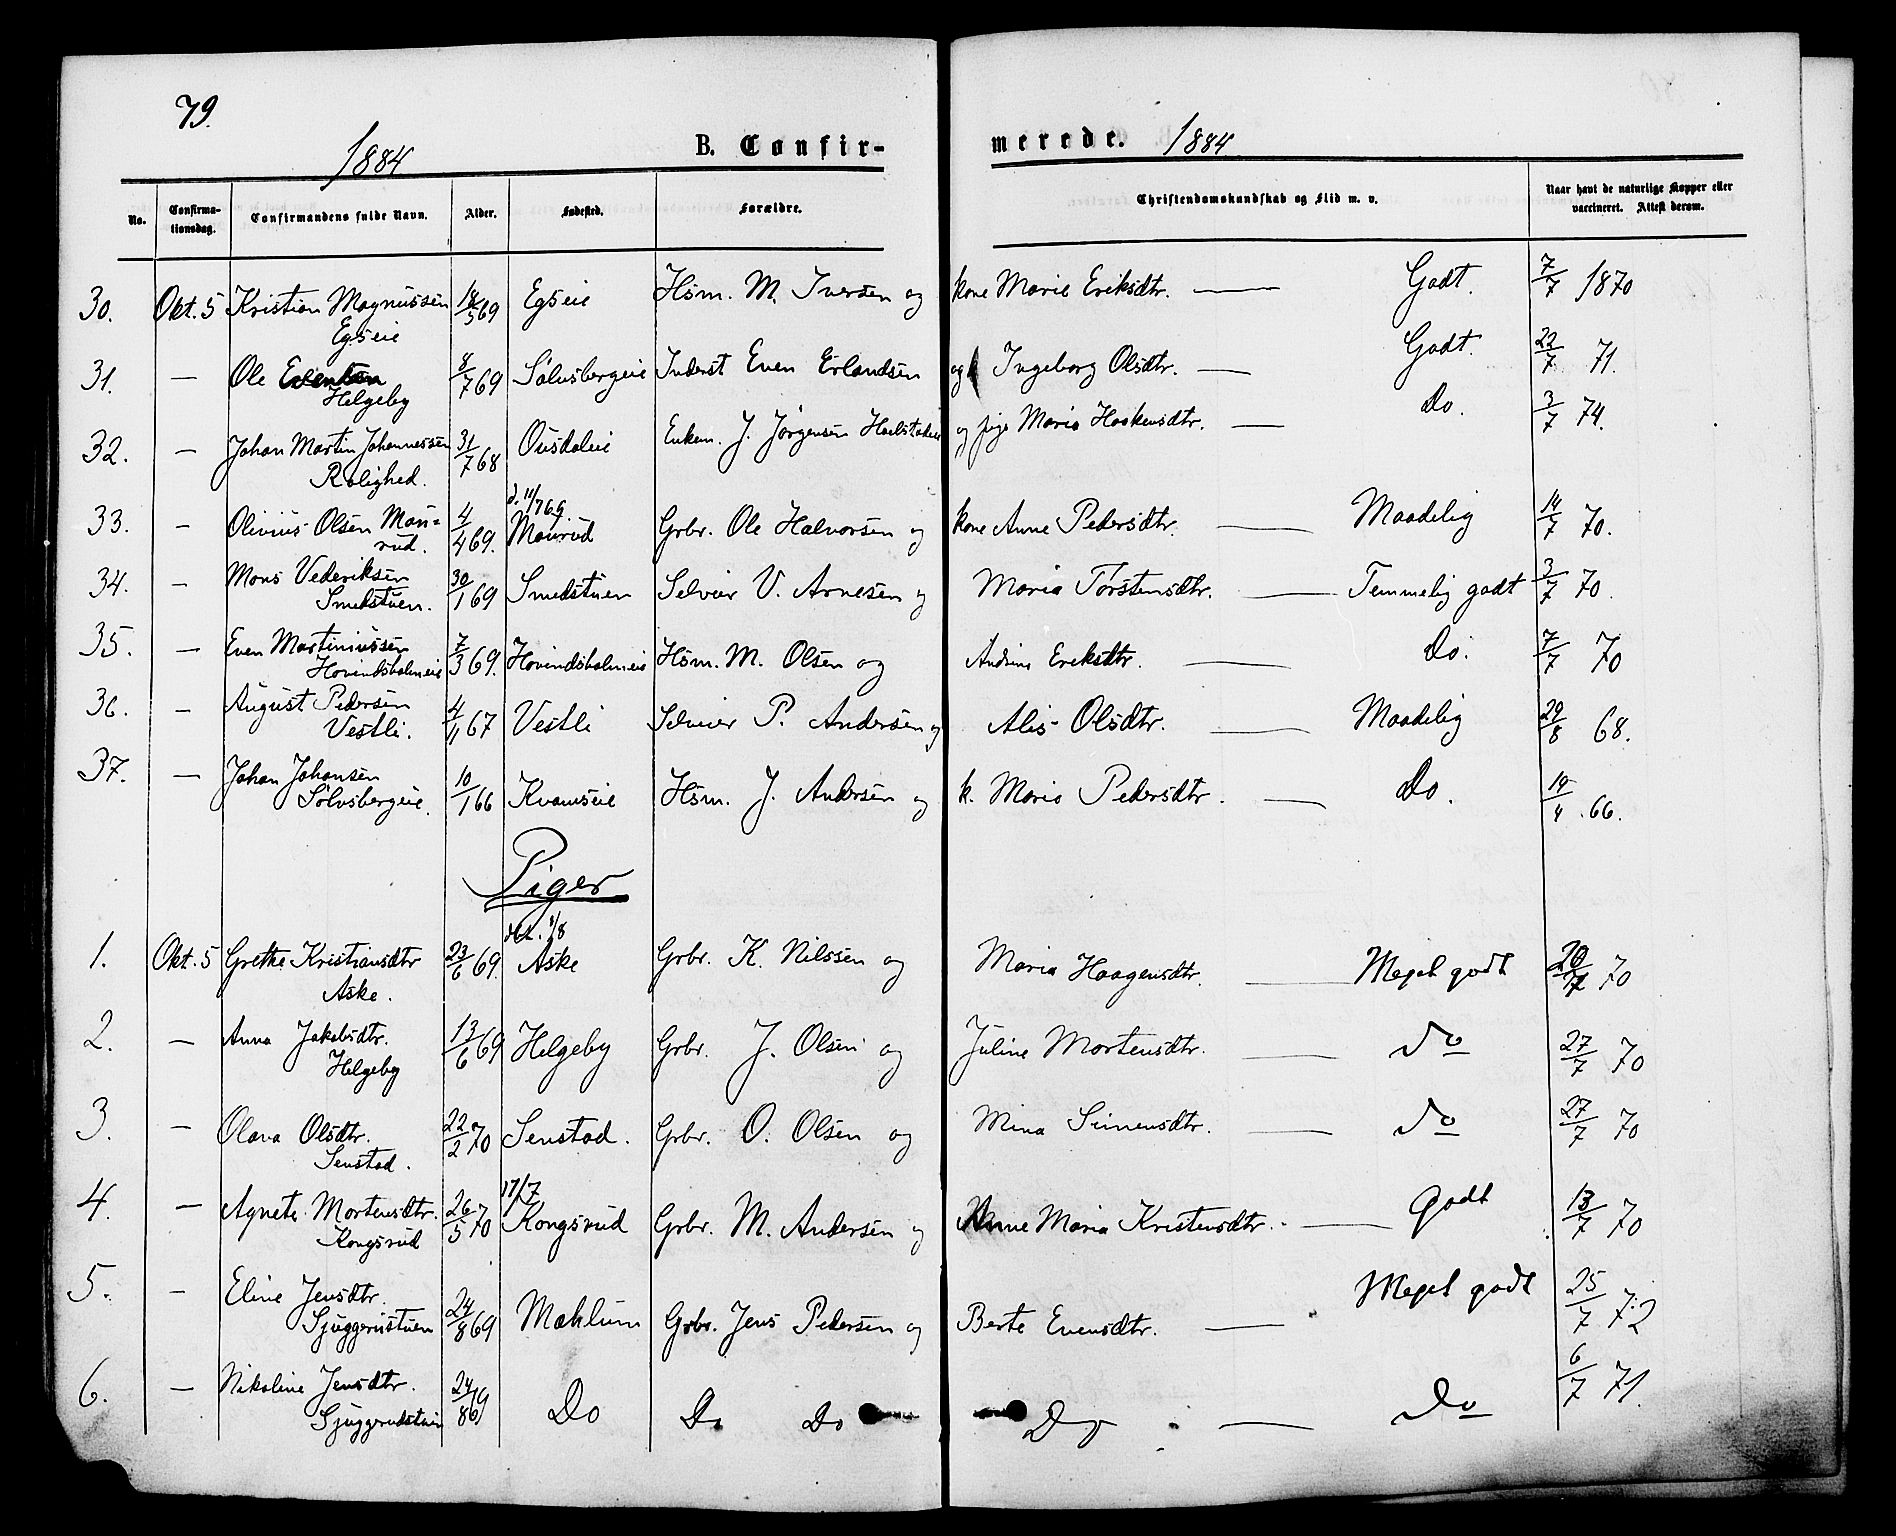 79.
1884
B. Confir-
merede. 1884
No.
Confirma-
tionsdag.
Confirmandens fulde Navn.
Alder.
Fødested.
Forældre.
Christendomskundskab og Flid m. v.
Naar havt de naturlige Kopper eller
vaccineret. Attest derom.
30. Okt. 5 Kristian Magnussen 18/5 69 Egseie Hsm. M. Iversen og kone Marie Eriksdtr. — Godt. 7/7 1870
Egseie
31. — Ole Evensen 8/7 69 Sølvsbergeie Inderst Even Erlandsen og k Ingeborg Olsdtr. — Godt. 22/7 71.
Helgeby
32. — Johan Martin Johannessen 31/7 68 Ousdaleie Enkem. J. Jørgensen og pige Maria Haakensdtr. — Do. 3/7 74.
Rolighed.
d. 11/7 69
33. — Olivius Olsen Mau- 4/4 69. Maurud Grbr. Ole Halvorsen og kone Anne Pedersdtr. — Maadelig 14/7 70.
rud.
34. — Mons Vederiksen 30/1 69 Smedstuen Selveier V. Arnesen og Maria Torstensdtr. — Temmelig godt 3/7 70.
Smedstuen.
35. — Even Martiniussen 7/3 69. Hovindsholmeie Hsm. M. Olsen og Andrine Eriksdtr. — Do. 7/7 70
Hovindsholmeie
36. — August Pedersen 4/11 67 Vestli Selveier P. Andersen og Alis Olsdtr. — Maadelig 29/8 68.
Vestli.
37. — Johan Johansen 10/1 66 Kvamseie Hsm. J. Andersen og k. Maria Pedersdtr. — Do. 19/4 66.
Sølvsbergeie.
Piger
1/8
1. Okt. 5 Grethe Kristiansdtr 23/6 69. Aske Grbr. K. Nilssen og Maria Haagensdtr. — Meget godt 20/7 70
Aske.
2. — Anna Jakobsdtr. 13/6 69 Helgeby Grbr. J. Olsen og Juline Mortensdtr. — do 27/7 70
Helgeby
3. — Olava Olsdtr. 22/2 70 Senstad. Grbr. O. Olsen og Mina Simensdtr. — do 27/7 70
Senstad.
17/7
4. — Agnete Mortensdtr. 26/5 70 Kongsrud Grbr. M. Andersen og Anne Maria Kristensdtr. — godt 13/7 70
Kongsrud
5. — Eline Jensdtr. 24/8 69 Mæhlum Grbr. Jens Pedersen og Berte Evensdtr. — Meget godt 25/7 72
Sjuggerustuen
6. — Nikoline Jensdtr. 24/8 69 Do Do Do Do — Do 6/7 71.
Sjuggerudstuen